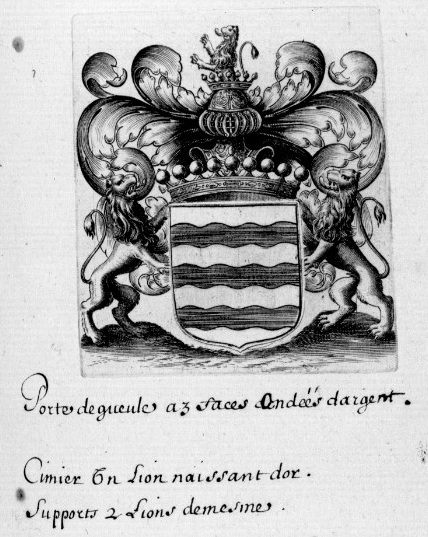 Porte de gueule a 3 faces Ondéés dargent.
Cimier Un Lion naissant dor.
Supports 2 Lions demesme.